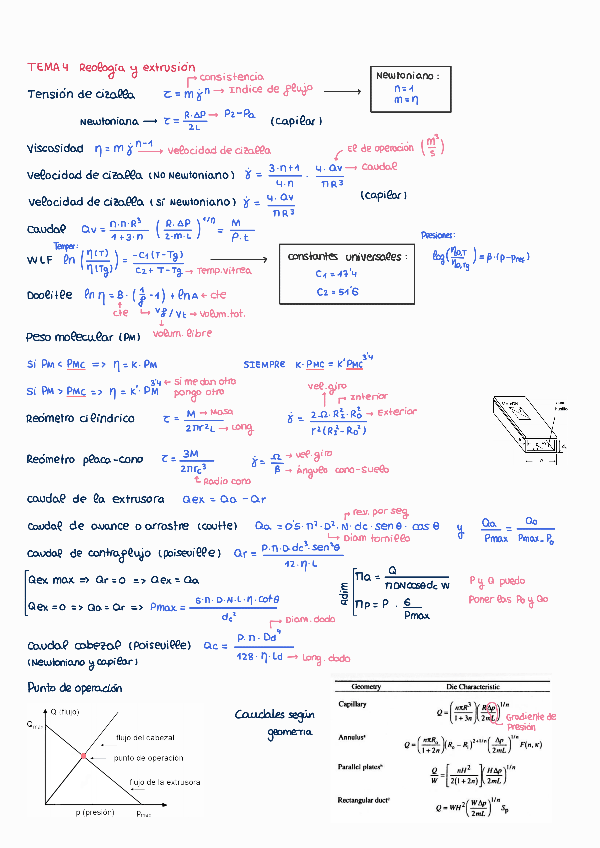 TEMA 4 Reología y extrusión
consistencia
Tensión de cizalla τ = m γ̇ⁿ → Indice de flujo
Newtoniano:
n = 1
m = η
Newtoniana → τ = R·ΔP / 2L → P2-Pa (capilar)
Viscosidad η = m γ̇ⁿ⁻¹ → velocidad de cizalla
El de operación (m³/s)
Velocidad de cizalla (No Newtoniano) γ̇ = 3·n+1 / 4·n · 4·Qv / πR³ → caudal
Velocidad de cizalla (Sí Newtoniano) γ̇ = 4·Qv / πR³ (capilar)
Caudal Qv = π·n·R³ / 1+3·n (R·ΔP / 2·m·L)^1/n = M / ρ·t
Temper:
WLF ln (η(T) / η(Tg)) = -C1(T-Tg) / C2+T-Tg → Temp.vítrea
constantes universales:
C1 = 17'4
C2 = 51'6
Presiones:
log(η0,T / η0,Tg) = β·(p-Pref)
Doolitle ln η = B·(1/f -1) + lnA ← cte
cte Vf/Vt → Volum.tot.
volum. libre
Peso molecular (PM)
Si PM < PMC => η = K·PM
SIEMPRE K·PMC = K'PMC^3'4
Si PM > PMC => η = K'·PM^3'4 ← Si me dan otro pongo otro
vel.giro
Interior
Reómetro cilíndrico τ = M / 2πr²L → Masa → Long γ̇ = 2·Ω·Ri²·Ro² / r²(Ri²-Ro²) → Exterior
Reómetro placa-cono τ = 3M / 2πrc³ γ̇ = Ω / β → vel.giro → ángulo cono-suelo
Radio cono
caudal de la extrusora Qex = Qa - Qr
rev. por seg
Caudal de avance o arrastre (coutte) Qa = 0'5·π²·D²·N·dc·sen θ·cos θ y Qa / Pmax = Qo / Pmax-Po
Diam tornillo
Caudal de contraflujo (poiseuille) Qr = p·π·D·dc³·sen²θ / 12·η·L
Qex max => Qr = 0 => Qex = Qa
Qex = 0 => Qa = Qr => Pmax = 6·π·D·N·L·η·cotθ / dc²
Adim
πa = Q / πDNcosθ dc W
πp = P · 6 / Pmax
P y Q puedo
Poner las Po y Qo
Diam. dado
Caudal cabezal (Poiseuille) Qc = p·π·Dd⁴ / 128·η·Ld → Long. dado
(Newtoniano y capilar)
Punto de operación
Q (flujo)
Qmax
flujo del cabezal
punto de operación
flujo de la extrusora
p (presión)
pmax
Caudales según
geometría
Geometry Die Characteristic
Capillary Q = (nπR³ / 1+3n)(RΔp / 2mL)^1/n
Gradiente de
Presión
Annulusᵃ Q = (nπRo / 1+2n)(Ro - Ri)^2+1/n (Δp / 2mL)^1/n F(n,κ)
Parallel platesᵇ Q/W = [nH² / 2(1+2n)](HΔp / 2mL)^1/n
Rectangular ductᶜ Q = WH²(WΔp / 2mL)^1/n Sp